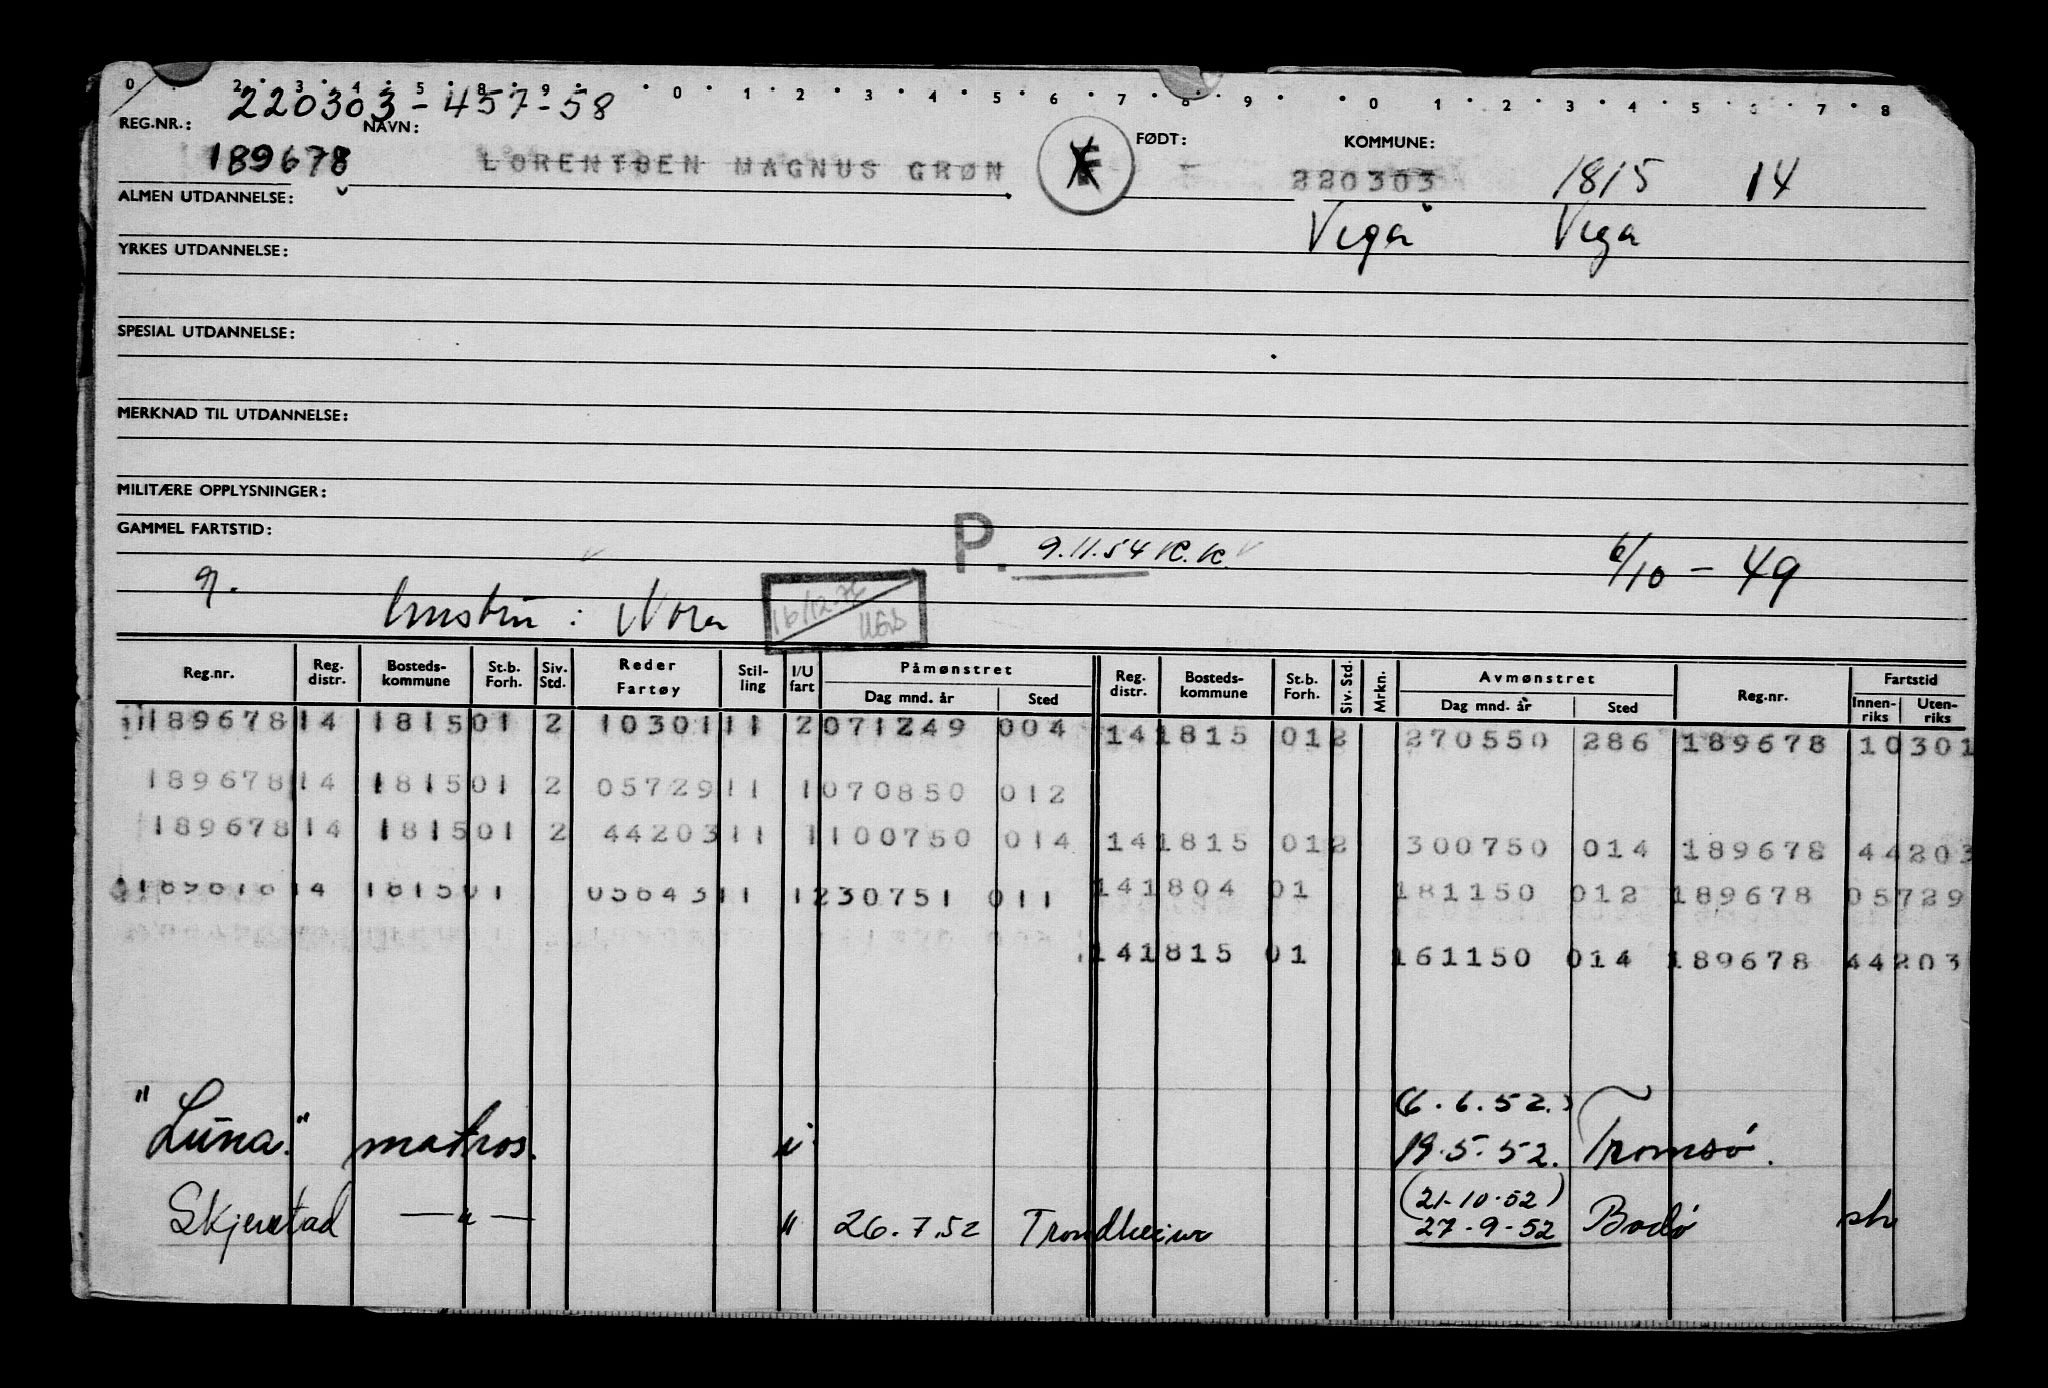 0 2 3 4 5 8 9 0 1 2 3 4 5 6 7 8 9 0 1 2 3 4 5 6 7 8
220303-457-58
REG.NR.: NAVN: FØDT: KOMMUNE:
189678 LORENTSEN MAGNUS GRØN 220303 1815 14
ALMEN UTDANNELSE: Vega Vega
YRKES UTDANNELSE:
SPESIAL UTDANNELSE:
MERKNAD TIL UTDANNELSE:
MILITÆRE OPPLYSNINGER:
GAMMEL FARTSTID: P. 9.11.54 K.K. 6/10-49
g. hustru: Nora
Reg.nr. Reg. distr. Bosteds-kommune St.b. Forh. Siv. Std. Reder Fartøy Stil-ling I/U fart Påmønstret Dag mnd. år Sted Reg. distr. Bosteds-kommune St.b. Forh. Siv. Std. Mrkn. Avmønstret Dag mnd. år Sted Reg.nr. Fartstid Innen-riks Uten-riks
189678 14 1815 01 2 10301 11 2 071249 004 14 1815 01 2 270550 286 189678 10301
189678 14 1815 01 2 05729 11 1 070850 012
189678 14 1815 01 2 44203 11 1 100750 014 14 1815 01 2 300750 014 189678 44203
189678 14 1815 01 05643 11 1 230751 011 14 1804 01 181150 012 189678 05729
14 1815 01 161150 014 189678 44203
(6.6.52.)
"Luna." matros. i 19.5.52. Tromsø.
(21-10-52)
Skjerstad —"— " 26.7.52 Trondheim 27-9-52 Bodø